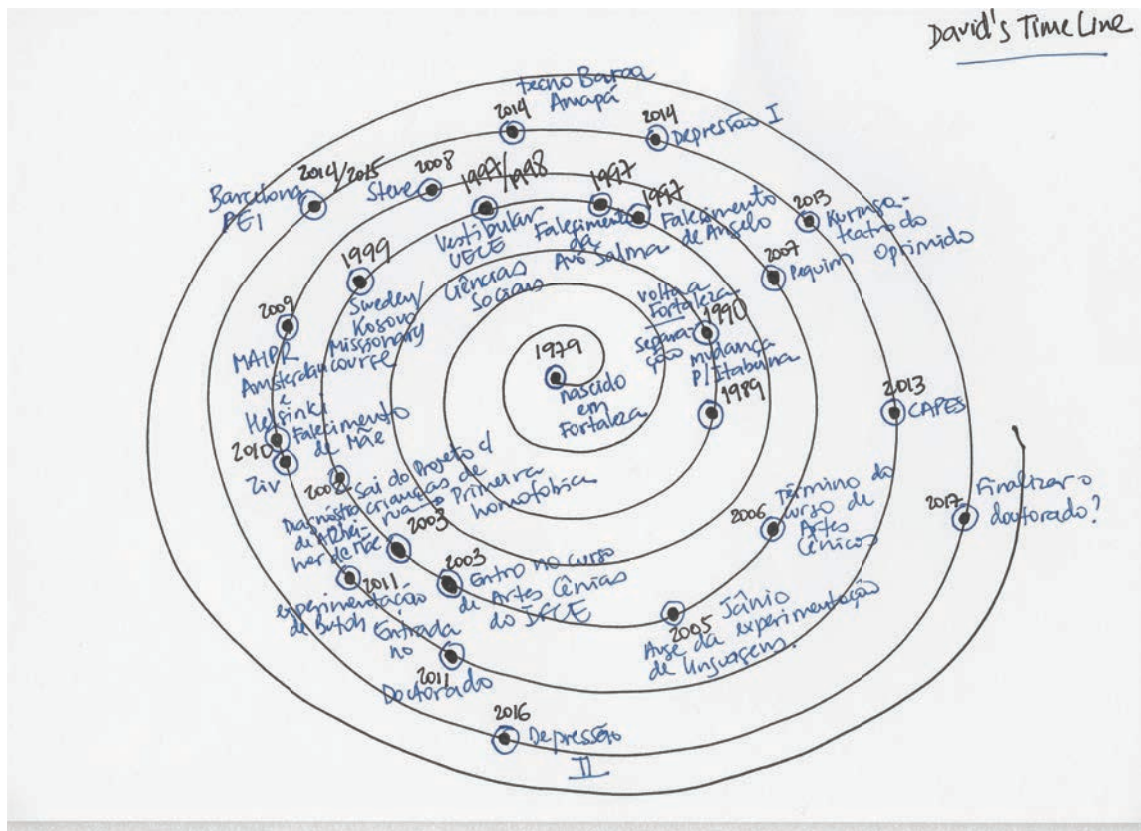 David's TimeLine
1979
nascido
em
Fortaleza
1989
mudança
p/Itabuna
1990
volta a
Fortaleza
separa-
ção
1997
Falecimento
de Angelo
1997
Falecimento
da
Avó Salma
1997/1998
Vestibular
UECE
Ciências
Sociais
1999
Sweden/
Kosovo
Missionary
course
Sai do Projeto c/
crianças de
rua → Primeira
homofobica
Diagnóstico
de Alzhei-
mer de Mãe
2003
2003
Entro no curso
de Artes Cênicas
do IFCE
2005
Jânio
Auge da experimentação
de linguagens.
2006
Término do
curso de
Artes
Cênicas
2007
Pequim
2008
Steve
2009
MAIPR
Amsterdam
e
Helsinki
Falecimento
de Mãe
2010
Ziv
2011
experimentação
de Butch
Entrada
no
2011
Doutorado
2013
CAPES
2013
Kuringa-
teatro do
Oprimido
2014
Depressão I
2014
tecno Barca
Amapá
2014/2015
Barcelona
PEI
2016
Depressão
II
2017
Finalizar o
doutorado?